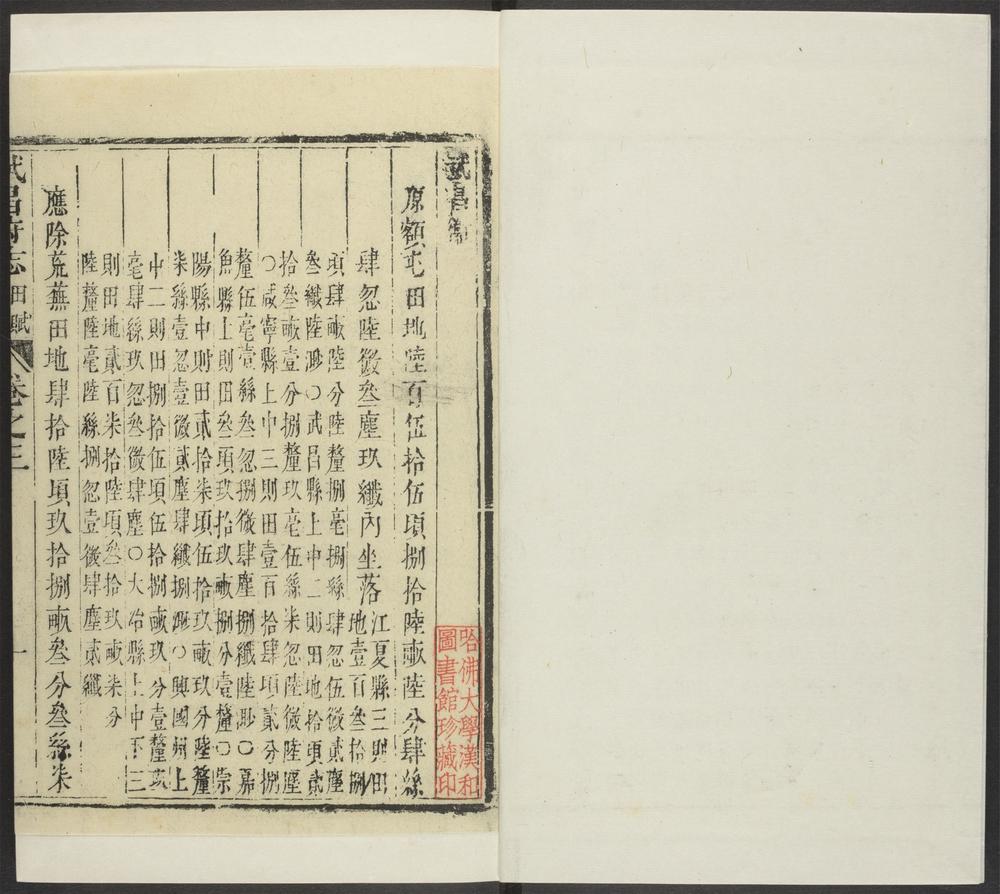 武昌衛
原額屯田地陸百伍拾伍頃捌拾陸畝陸分肆絲
肆忽陸微叁塵玖纖內坐落江夏縣三則田
地壹百叁拾捌
頃肆畝陸分陸釐捌毫捌絲肆忽伍微貳塵
叁纖陸渺○武昌縣上中二則田地拾頃貳
拾叁畝壹分捌釐玖毫伍絲柒忽陸微陸塵
○咸寧縣上中三則田壹百拾肆頃貳分捌
釐伍毫壹絲叁忽捌微肆塵捌纖陸渺○嘉
魚縣上則田叁頃玖拾玖畝捌分壹釐○崇
陽縣中則田貳拾柒頃伍拾玖畝玖分陸釐
柒絲壹忽壹微貳塵肆纖捌渺○興國州上
中二則田捌拾伍頃伍拾捌畝玖分壹釐貳
毫肆絲玖忽叁微肆塵○大冶縣上中下三
則田地貳百柒拾陸頃叁拾玖畝柒分
陸釐陸毫陸絲捌忽壹微肆塵貳纖
應除荒蕪田地肆拾陸頃玖拾捌畝叁分叁絲柒
武昌府志 田賦 卷之三 一
哈佛大學漢和
圖書館珍藏印